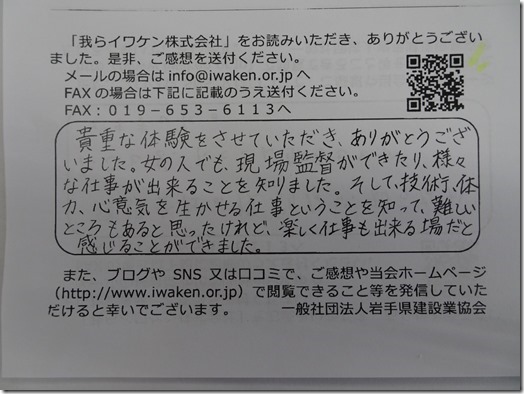 「我らイワケン株式会社」をお読みいただき、ありがとうござい
ました。是非、ご感想を送付ください。
メールの場合は info@iwaken.or.jp へ
FAX の場合は下記に記載のうえ送付ください。
FAX：019－653－6113へ
貴重な体験をさせていただき、ありがとうござ
いました。女の人でも、現場監督ができたり、様々
な仕事が出来ることを知りました。そして、技術、体
力、心意気を生かせる仕事ということを知って、難しい
ところもあると思ったけれど、楽しく仕事も出来る場だと
感じることができました。
また、ブログや SNS 又は口コミで、ご感想や当会ホームページ
（http://www.iwaken.or.jp）で閲覧できること等を発信していた
だけると幸いでございます。 一般社団法人岩手県建設業協会